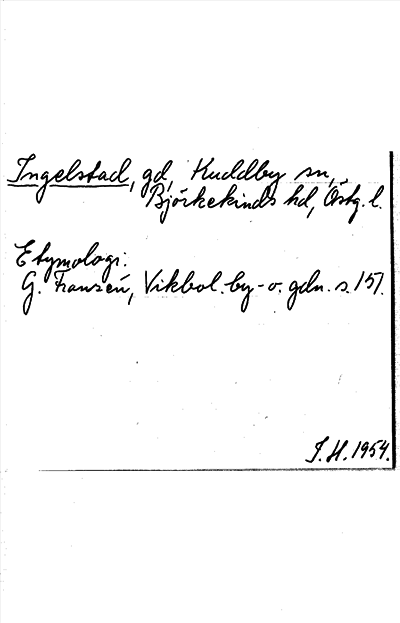 Ingelstad, gd, Kuddby sn,
Björkekinds hd, Östg. l.
Etymologi:
G. Franzén, Vikbol. by- o. gdn. s. 157.
J. H. 1954.